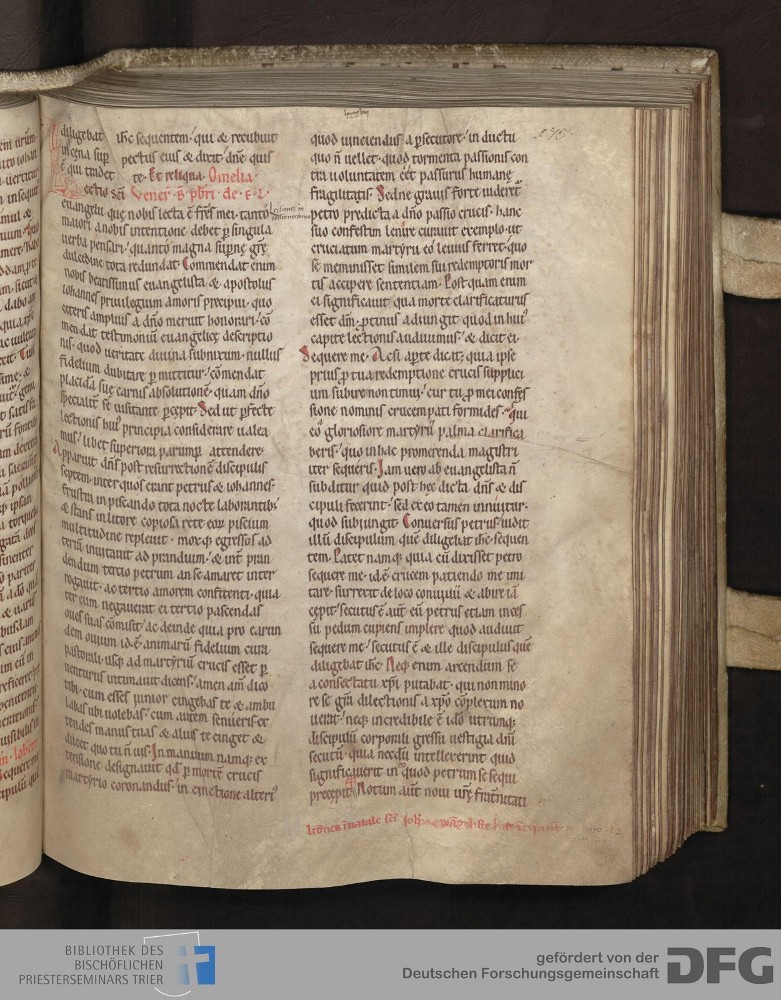 diligebat ihc sequentem· qui & recubuit
in cena sup pectus eius & dixit· dn̄e quis
ē qui tradet te· Et reliqua· Omelia·
Lectio scī Vener· b· pbri· de· e· l·
euangelii que nobis lecta ē frs̄ mei· tanto
maiori a nobis intentione debet p singula
uerba pensari· quanto magna supnę grę
dulcedine tota redundat· Commendat enim
nobis beatissimus euangelista & apostolus
iohannes priuilegium amoris precipui· quo
ceteris amplius a dn̄o meruit honorari· cō
mendat testimonium euangelicę descriptio
nis· quod ueritate diuina subnixum· nullus
fidelium dubitare p mittitur· cōmendat
placida suę carnis absolutionē· quam dn̄o
specialit se uisitante pcepit· Sed ut pfecte
lectionis hui' principia considerare ualea
mus· libet superiora parump attendere·
Apparuit dn̄s post resurrectionē discipulis
septem· inter quos erant petrus & iohannes·
frustra in piscando tota nocte laborantib;
& stans in litore copiosa rete eoꝝ piscium
multitudine repleuit· moxq; egressos ad
terrā inuitauit ad prandium· & int pran
dendum tercio petrum an se amaret inter
rogauit· ac tertio amorem confitenti· quia
ter eum negauerat ei tertio pascendas
oues suas cōmisit· ac deinde quia pro earun
dem ouium id·ē· animarū fidelium cura
pastorali usq; ad martyriū crucis esset p
uenturus intimauit dicens· amen am̄ dico
tibi· cum esses iunior cingebas te & ambu
labas ubi uolebas· cum autem senueris ex
tendes manus tuas & alius te cinget &
ducet quo tu n̄ uis· In manuum namq; ex
tensione designauit qd p mortē crucis
martyrio coronandus· in cinctione alteri'
quod uinciendus a psecutore· in ductu
quo n̄ uellet· quod tormenta passionis con
tra uoluntatem eēt passurus humanę
fragilitatis· Sed ne grauis forte uideret
petro predicta a dn̄o passio crucis· hanc
suo confestim lenire curauit exemplo· ut
cruciatum martyrii eo leuius ferret· quo
se meminisset similem sui redemptoris mor
tis accipere sententiam· Postquam enim
ei significauit qua morte clarificaturus
esset dm̄· ptinus adiungit quod in hui'
capite lectionis audiuimus· & dicit ei·
Sequere me· Acsi apte dicit· quia ipse
prius p tua redemptione crucis supplici
um subire non timui· cur tu p mei confes
sione nominis crucem pati formides· qui
eo gloriosiore martyrii palma clarifica
beris· quo in hac promerenda magistri
iter sequeris· Iam uero ab euangelista n̄
subditur quid post hec dicta dn̄s & dis
cipuli fecerint· sed ex eo tamen innuitur·
quod subiungit· Conuersus petrus uidit
illū discipulum quē diligebat ihc sequen
tem· Patet namq; quia cū dixisset petro
sequere me· id·ē· crucem patiendo me imi
tare· surrexit de loco conuiuii & abire iā
cepit· secutus ē aut eū petrus etiam inces
su pedum cupiens implere quod audiuit
sequere me· secutus ē & ille discipulus quē
diligebat ihc· Neq; enim arcendum se
a consectatu xpī putabat· qui non mino
re se grā dilectionis a xpō cōplexum no
uerat· neq; incredibile ē ido utrumq;
discipulū corporali gressu uestigia dn̄i
secutū· quia necdū intellexerint quid
significauerit in quod petrum se sequi
precepit· Notum aut noui urę frat̄nitati
BIBLIOTHEK DES
BISCHÖFLICHEN
PRIESTERSEMINARS TRIER
gefördert von der
Deutschen Forschungsgemeinschaft
DFG